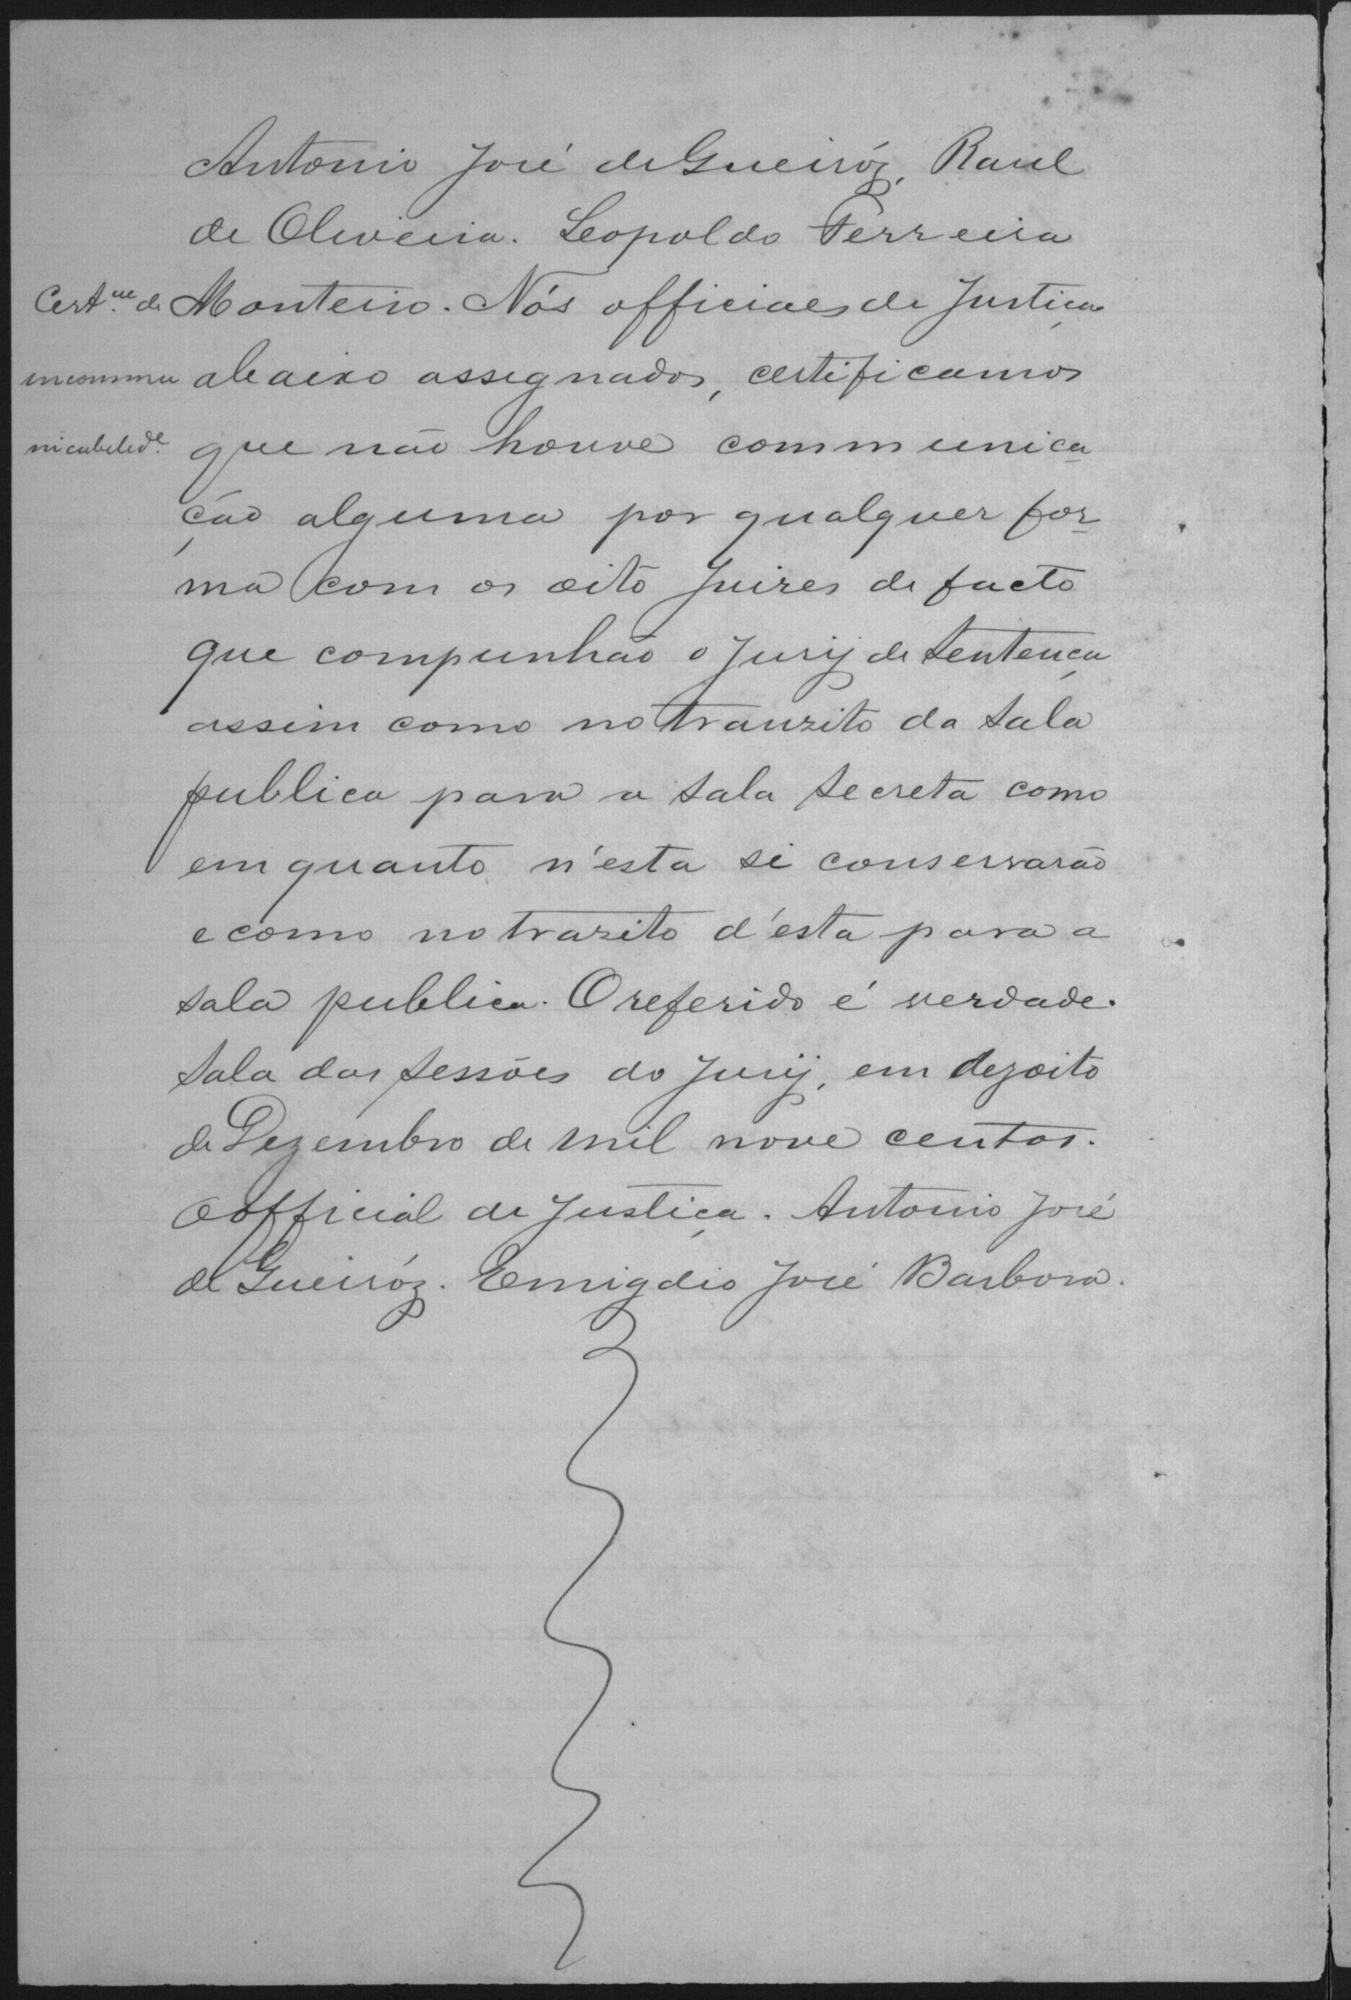 Antonio José de Gueiróz, Raul
de Oliveira. Leopoldo Ferreira
Cert.ᵃᵉ de Monteiro. Nós officiaes de Justiça
incommu abaixo assegnados, certificamos
nicabelidᵉ. que não houve communica
ção alguma por qualquer for
ma com os oito Juizes de facto
que compunhão o Jury de Sentença
assim como no tranzito da sala
publica para a sala secreta como
em quanto n'esta si conservarão
e como no trazito d'esta para a
sala publica. O referido é verdade.
Sala das sessões do Jury, em dezoito
de Dezembro de mil nove centos.
O official de Justiça. Antonio José
de Gueiróz. Emigdio José Barbosa.